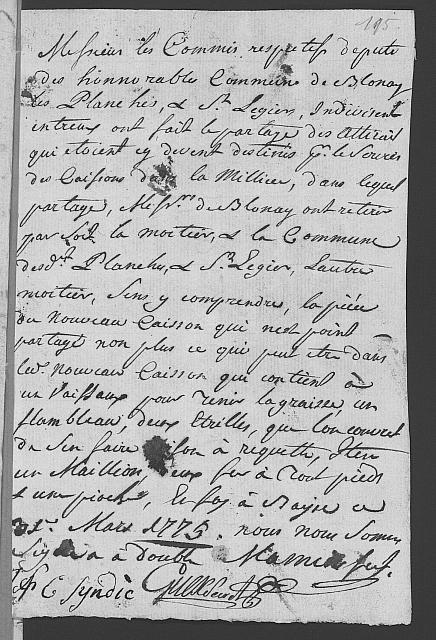 195
Messieur les Commis respectifs deputé
des honnorables Commune de Blonay
les Planches, & St Legier, Indivisent
entreux ont fait le partage des attirait
qui etoient cy devent destinés Pr le Service
des Caissons dans la Millice, dans lequel
partage, Messrs de Blonay ont retirer
par Sort la moitier, & la Commune
desdt Planches, & St Legier, Lautre
moitier, Sens y comprendre, la pièce
du Nouveau Caisson qui nest point
partagé non plus ce qui peu etre dans
led Nouveau Caisson qui contient à
un Vaisseaux pour tenir la graisse, un
flambeau, deux Etrilles, que lon
du Sen faire à requette, Item
un Maillion, deux fer à Tout pieds
& une pioche, le fay à Bayse ce
31e Mars 1775. nous nous Somm
Signer a à double
Syndic